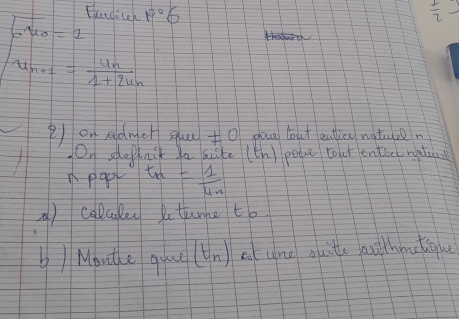 Exercice N°6
u0 = 1
un+1 = un / 1+2un
2) on admet que ≠ 0 pour tout entier naturel n
On définit la suite (tn) pour tout entier naturel
n par tn = 1/un
a) calculer le terme t0.
b) Montre que (tn) est une suite arithmétique